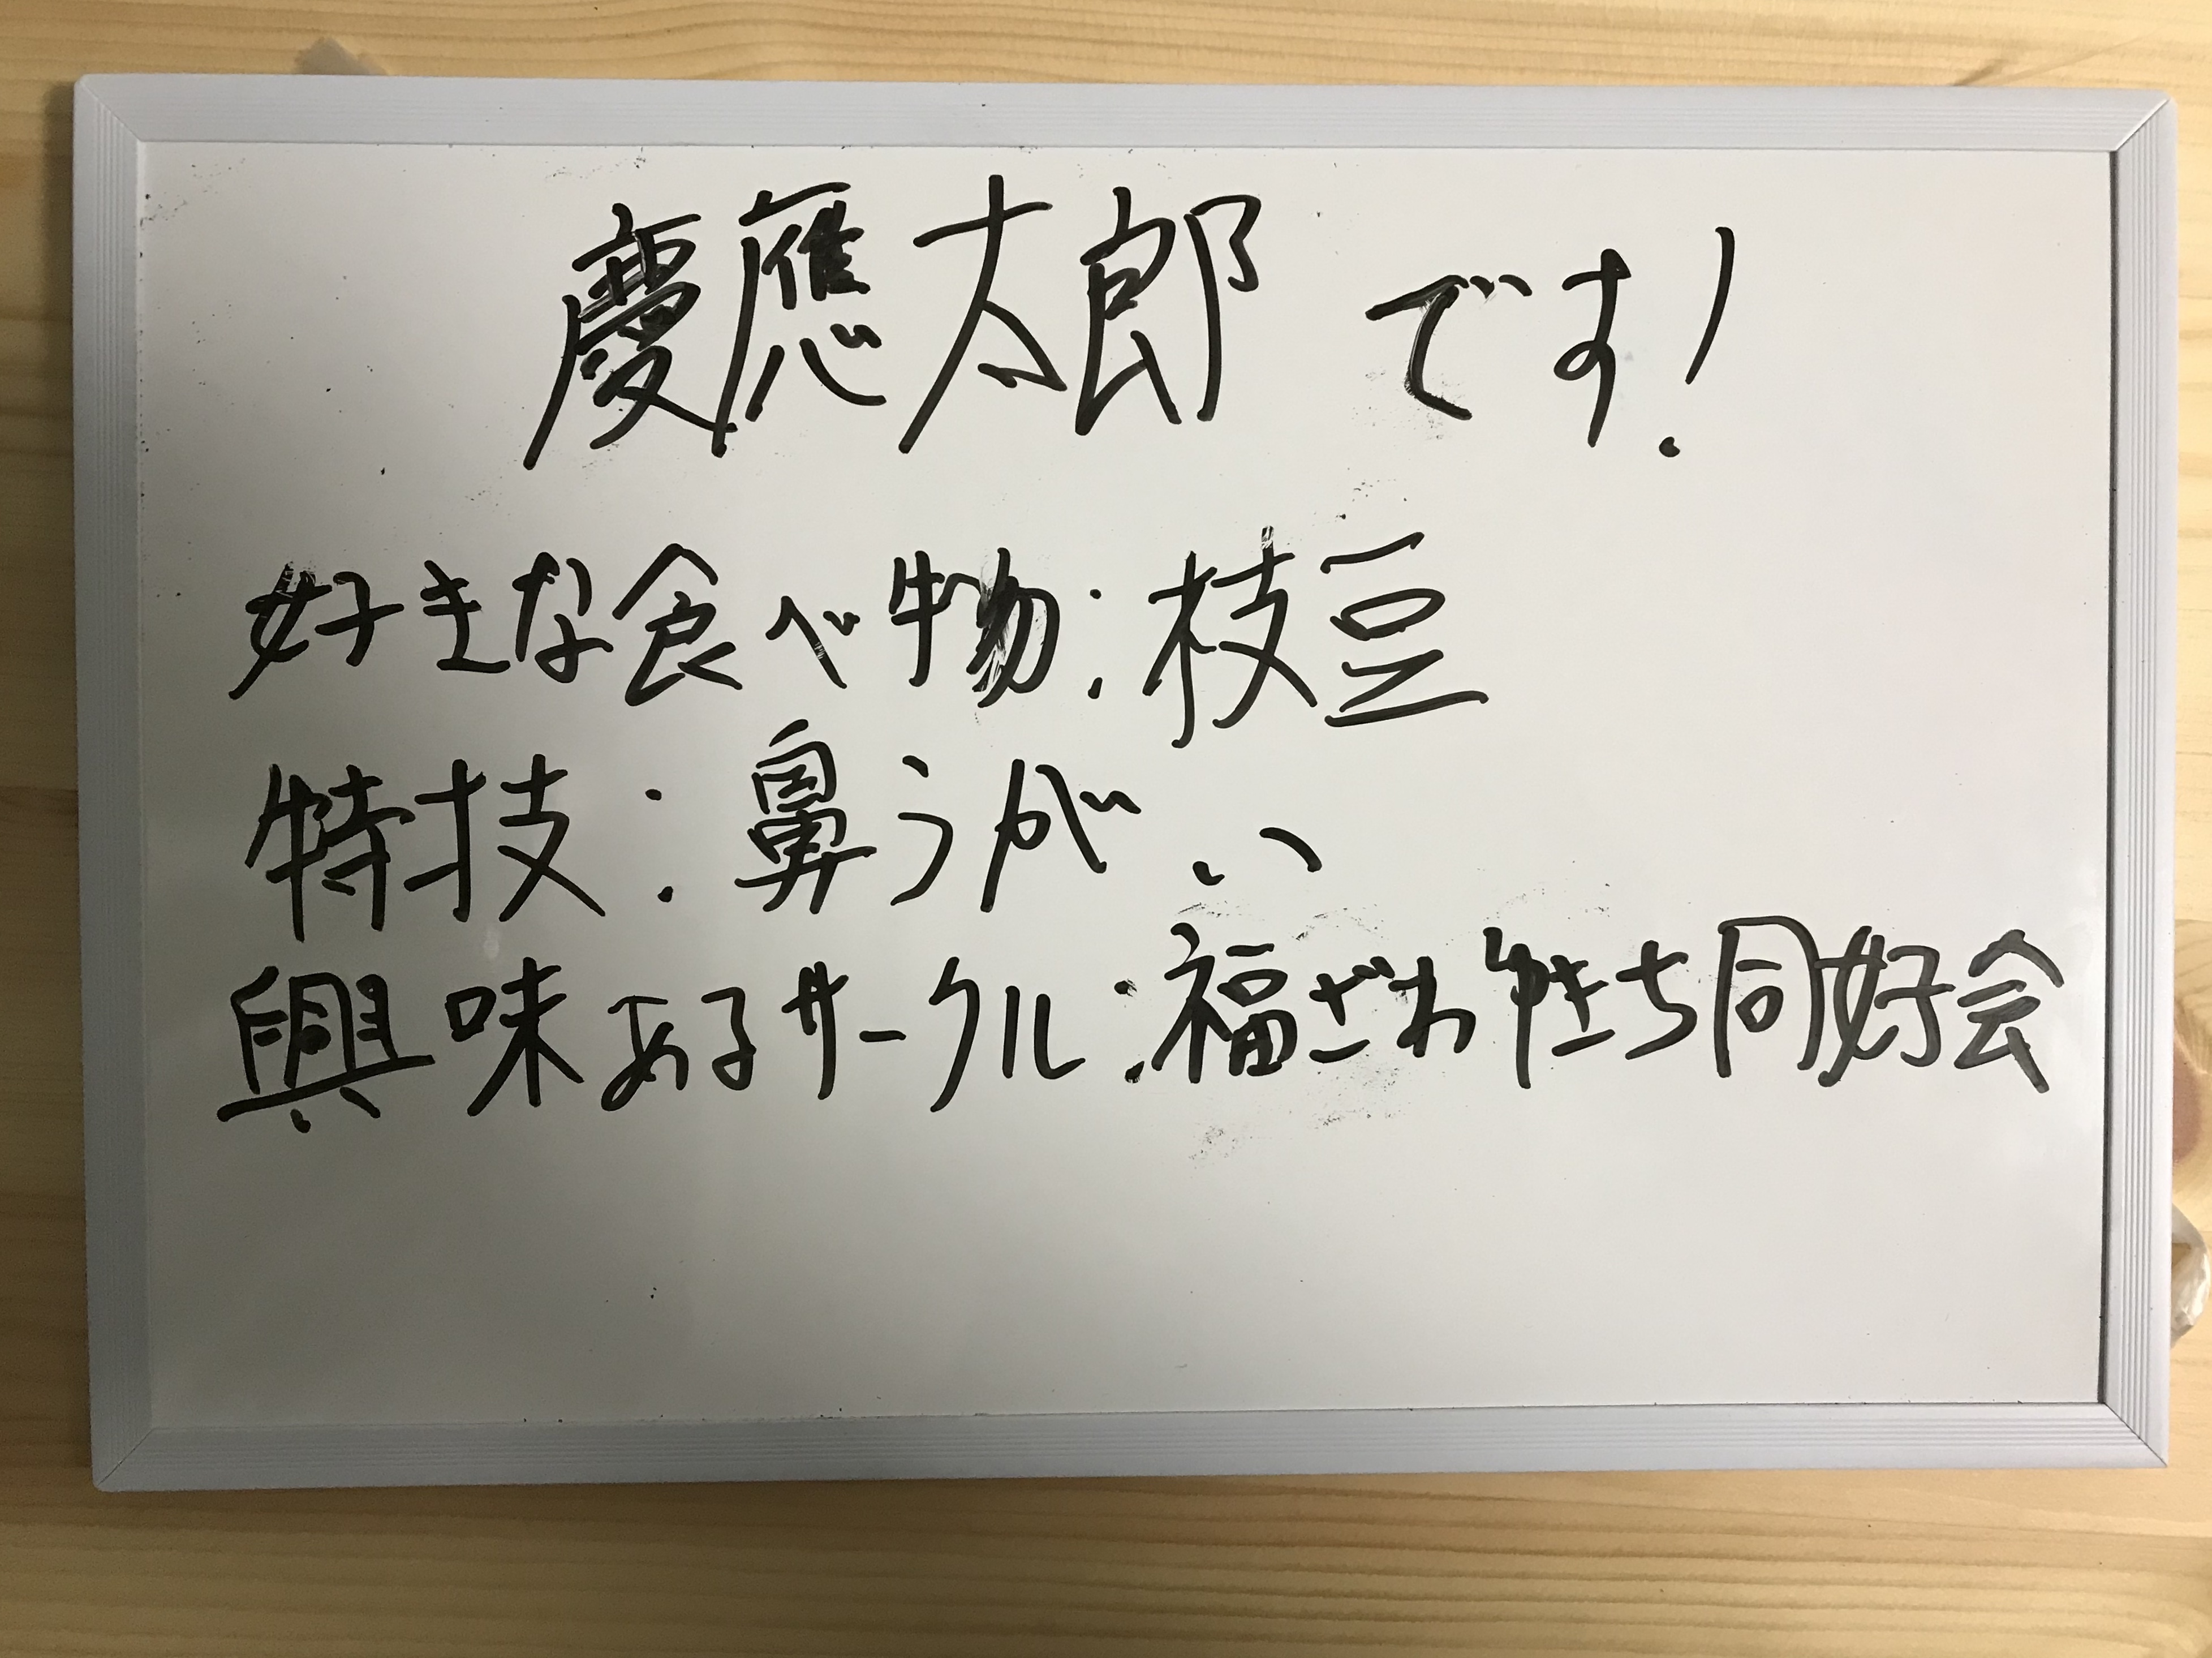 慶應太郎 です!
好きな食べ物:枝豆
特技:鼻うがい
興味あるサークル:福ざわゆきち同好会